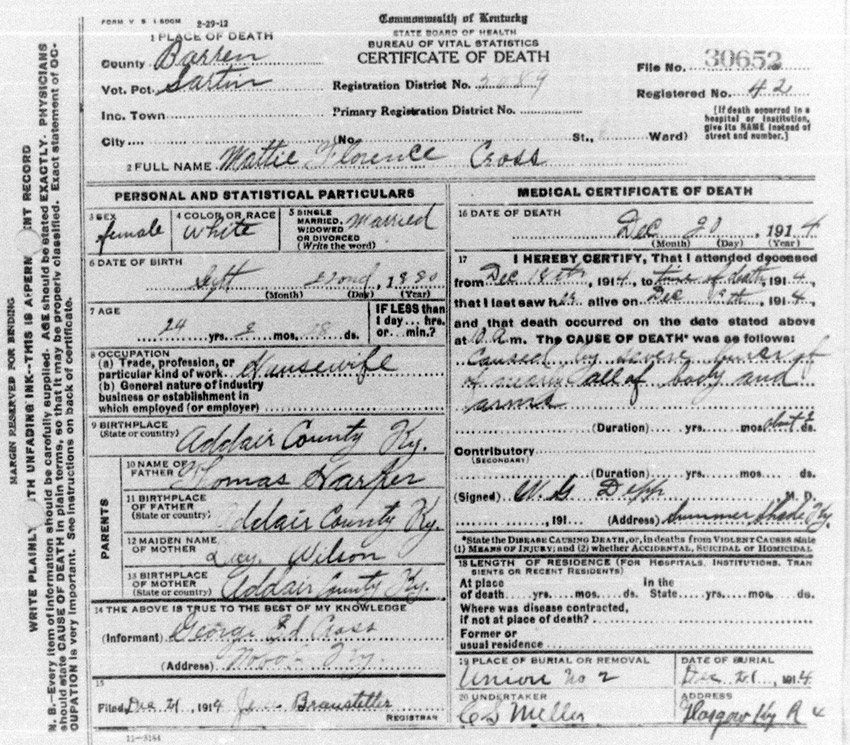 FORM V. S. 1-500M 2-29-12
Commonwealth of Kentucky
STATE BOARD OF HEALTH
BUREAU OF VITAL STATISTICS
CERTIFICATE OF DEATH
1 PLACE OF DEATH
County Barren
Vot. Pct. Sartin
Inc. Town
City
Registration District No.
Primary Registration District No.
(No. St., Ward)
File No. 30652
Registered No. 42
[If death occurred in a
hospital or institution,
give its NAME instead of
street and number.]
2 FULL NAME Mattie Florence Cross
PERSONAL AND STATISTICAL PARTICULARS
3 SEX female
4 COLOR OR RACE White
5 SINGLE MARRIED, WIDOWED OR DIVORCED (Write the word) Married
6 DATE OF BIRTH
Sept 22nd, 1880
(Month) (Day) (Year)
7 AGE
yrs. 2 mos. 28 ds.
IF LESS than
1 day... hrs.
or... min.?
8 OCCUPATION
(a) Trade, profession, or
particular kind of work Housewife
(b) General nature of industry
business or establishment in
which employed (or employer)
9 BIRTHPLACE
(State or country) Addair County Ky.
PARENTS
10 NAME OF
FATHER Thomas Harper
11 BIRTHPLACE
OF FATHER
(State or country) Addair County Ky.
12 MAIDEN NAME
OF MOTHER Lucy Wilson
13 BIRTHPLACE
OF MOTHER
(State or country) Addair County Ky.
14 THE ABOVE IS TRUE TO THE BEST OF MY KNOWLEDGE
(Informant) George Ed Cross
(Address) Ky.
15
Filed Dec 21, 1914 Branstetter
REGISTRAR
11-3184
MEDICAL CERTIFICATE OF DEATH
16 DATE OF DEATH
Dec 20, 1914
(Month) (Day) (Year)
17 I HEREBY CERTIFY, That I attended deceased
from Dec 18th, 1914, to time of death, 1914,
that I last saw her alive on Dec, 1914,
and that death occurred on the date stated above
at m. The CAUSE OF DEATH* was as follows:
Caused by severe burns of
of nearly all of body and
arms
(Duration) yrs. mos. ds.
Contributory
(SECONDARY)
(Duration) yrs. mos. ds.
(Signed) W. G. Depp M. D.
, 191 (Address) Summer Shade Ky.
*State the DISEASE CAUSING DEATH, or, in deaths from VIOLENT CAUSES state
(1) MEANS OF INJURY; and (2) whether ACCIDENTAL, SUICIDAL or HOMICIDAL
18 LENGTH OF RESIDENCE (FOR HOSPITALS, INSTITUTIONS, TRAN
SIENTS OR RECENT RESIDENTS)
At place In the
of death yrs. mos. ds. State yrs. mos. ds.
Where was disease contracted,
if not at place of death?
Former or
usual residence
19 PLACE OF BURIAL OR REMOVAL
Union No 2
DATE OF BURIAL
Dec 21, 1914
20 UNDERTAKER
C S Miller
ADDRESS
Glasgow Ky R 4
MARGIN RESERVED FOR BINDING
WRITE PLAINLY WITH UNFADING INK--THIS IS A PERMANENT RECORD
N. B.--Every item of information should be carefully supplied. AGE should be stated EXACTLY. PHYSICIANS
should state CAUSE OF DEATH in plain terms, so that it may be properly classified. Exact statement of OC-
CUPATION is very important. See instructions on back of certificate.